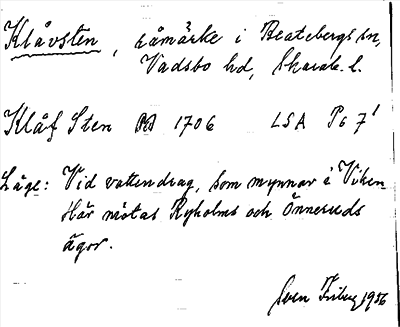 Klåvsten, råmärke i Beatebergs sn,
Vadsbo hd, Skarab. l.
Klåf Sten RB 1706 LSA P67¹
Läge: Vid vattendrag, som mynnar i Viken
Här mötas Ryholms och Önneruds
ägor.
Sven Friberg 1956